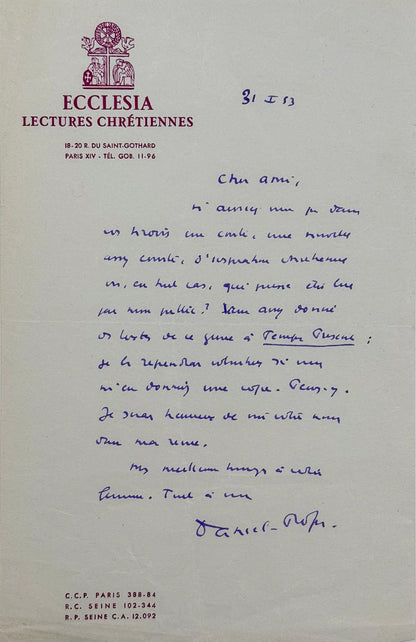 ECCLESIA
LECTURES CHRÉTIENNES
18-20 R. DU SAINT-GOTHARD
PARIS XIV - TÉL. GOB. 11-96
31 I 53
Cher ami,
n'auriez vous pas dans
vos tiroirs un conte, une nouvelle
assez courte, d'inspiration chrétienne
ou, en tout cas, qui puisse être lue
par mon public? Vous avez donné
des textes de ce genre à Temps Présent ;
je les reprendrai volontiers si vous
m'en donniez une copie. Pensez-y.
Je serais heureux de vous
dans ma revue.
Mes meilleurs hommages à votre
femme. Tout à vous
Daniel-Rops.
C.C.P. PARIS 388-84
R.C. SEINE 102-344
R.P. SEINE C.A. 12.092